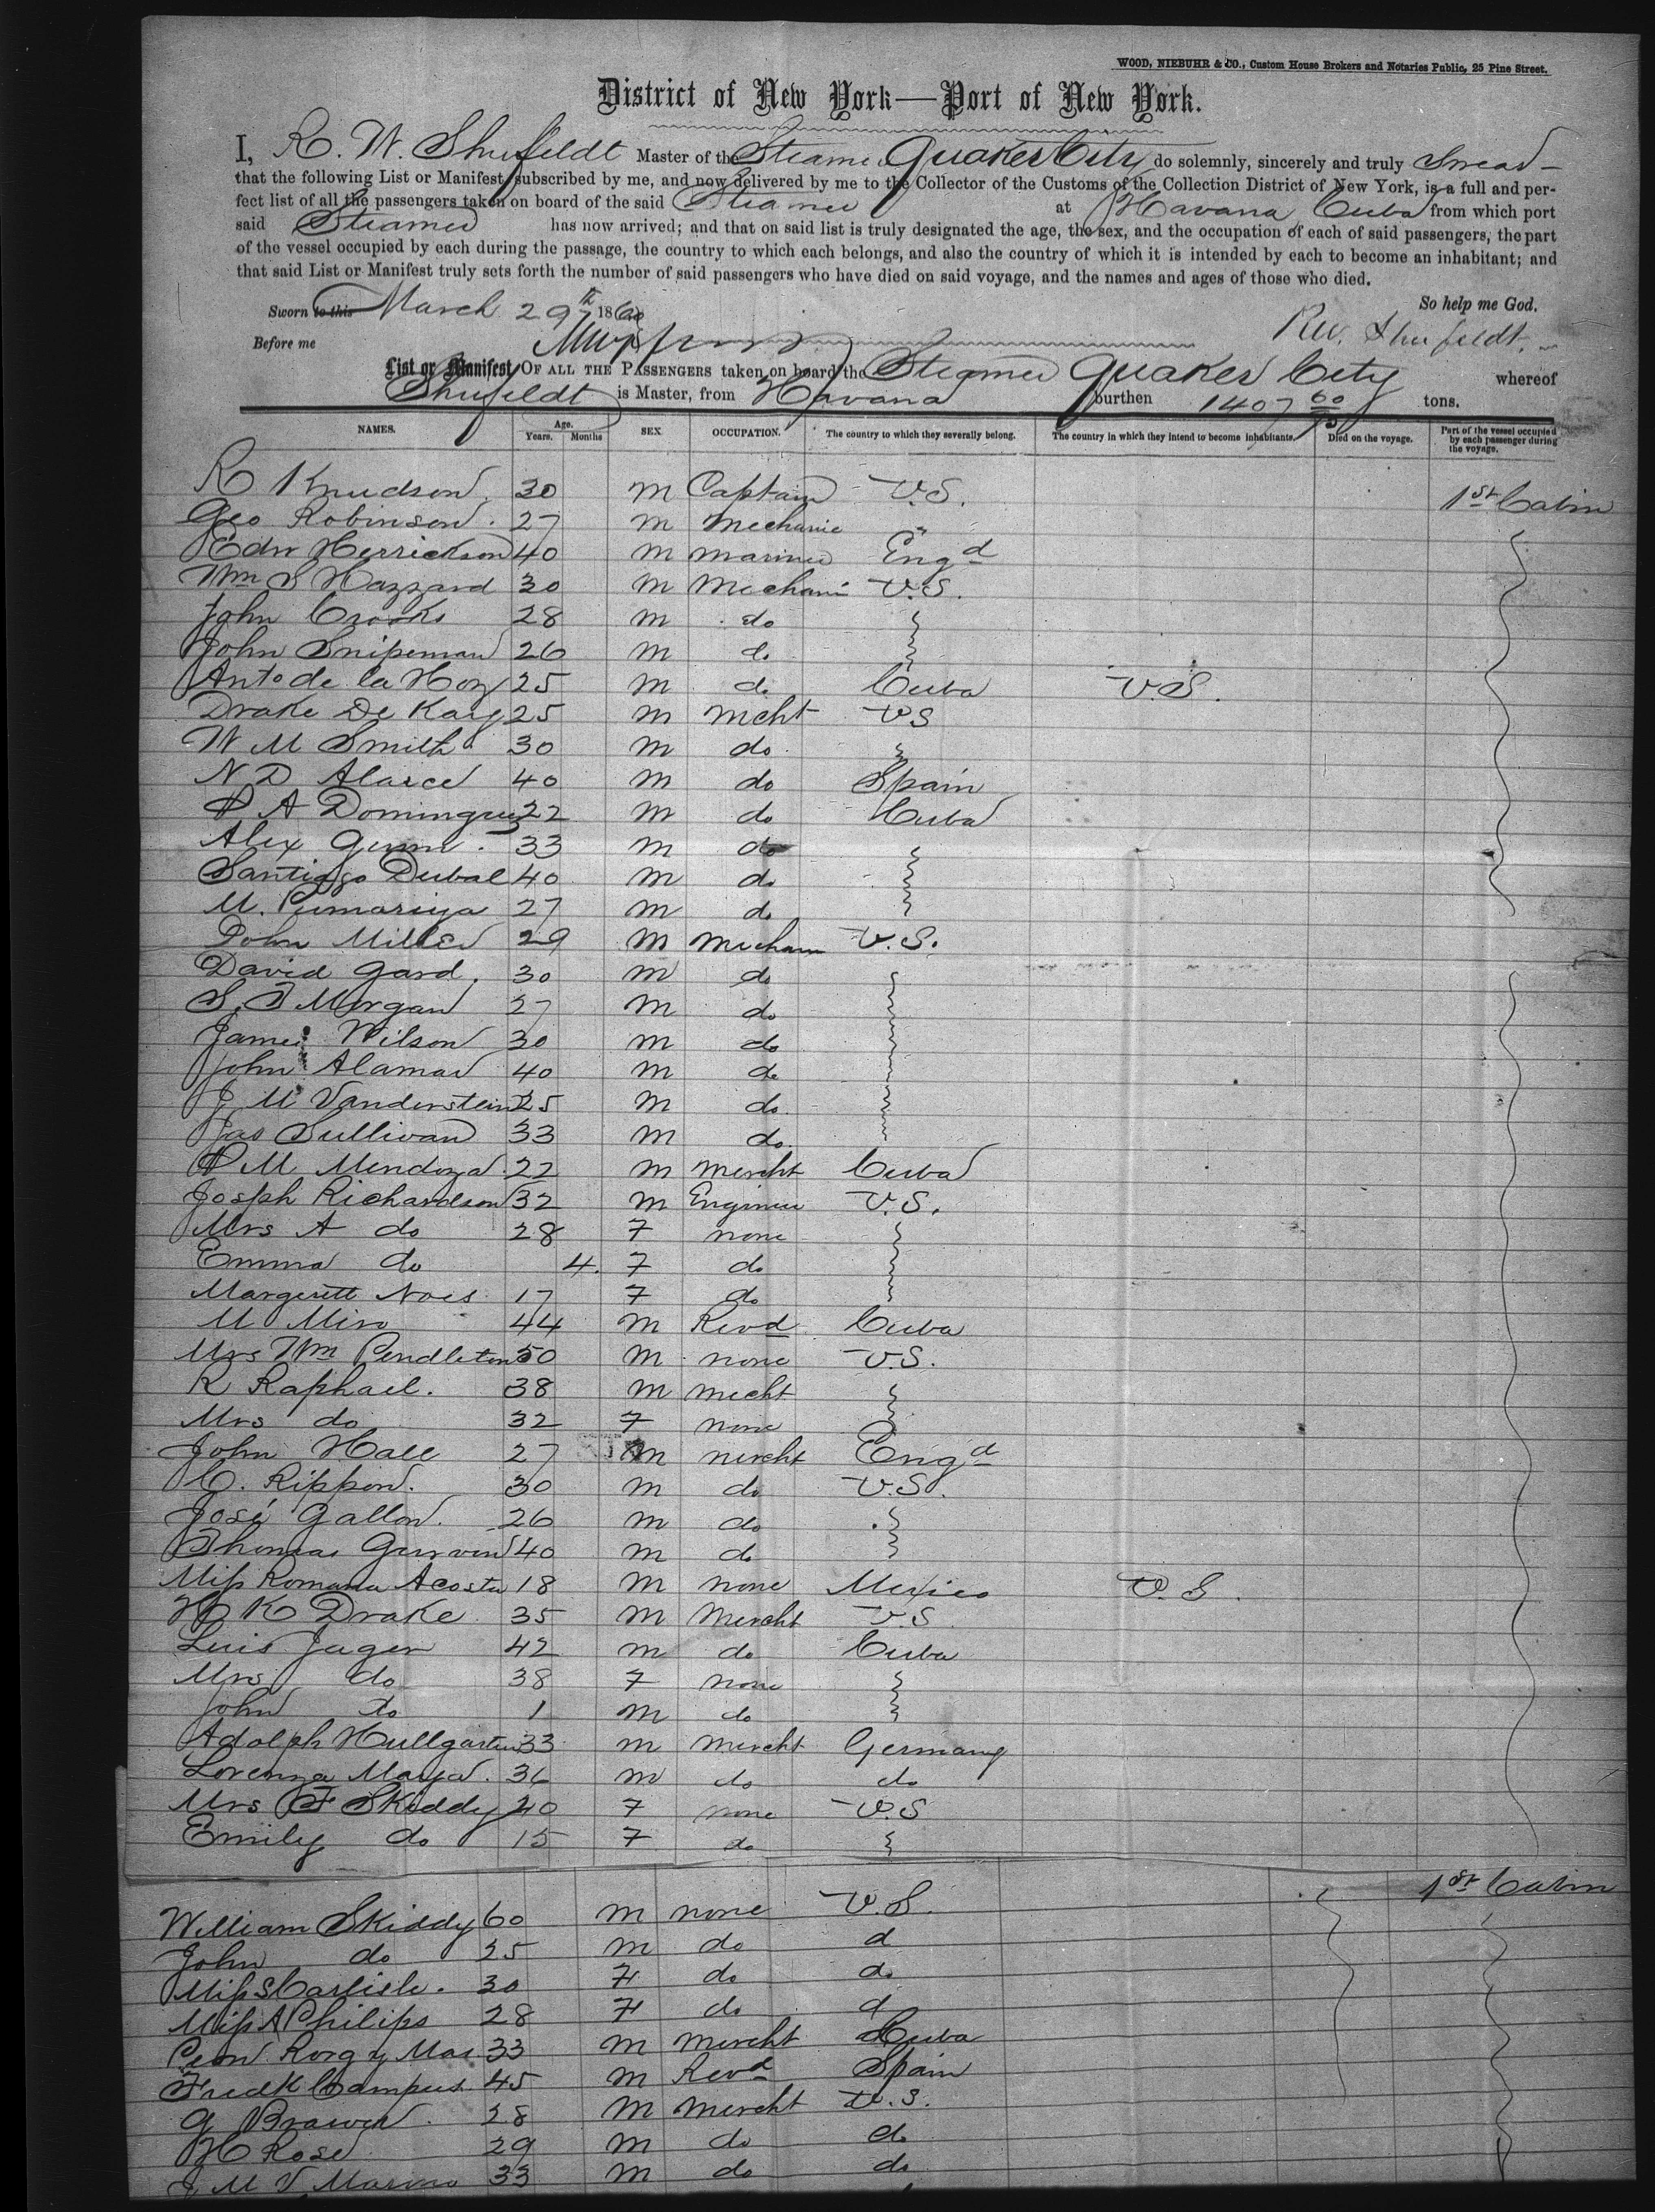 WOOD, NIEBUHR & CO., Custom House Brokers and Notaries Public, 25 Pine Street.
District of New York—Port of New York.
I, R. W. Shufeldt Master of the Steamer Quaker City do solemnly, sincerely and truly Swear
that the following List or Manifest subscribed by me, and now delivered by me to the Collector of the Customs of the Collection District of New York, is a full and per-
fect list of all the passengers taken on board of the said Steamer at Havana Cuba from which port
said Steamer has now arrived; and that on said list is truly designated the age, the sex, and the occupation of each of said passengers, the part
of the vessel occupied by each during the passage, the country to which each belongs, and also the country of which it is intended by each to become an inhabitant; and
that said List or Manifest truly sets forth the number of said passengers who have died on said voyage, and the names and ages of those who died.
So help me God.
Sworn to this March 29th 1860
R W. Shufeldt.
Before me
List or Manifest OF ALL THE PASSENGERS taken on board the Steamer Quaker City whereof
Shufeldt is Master, from Havana burthen 1407 60/95 tons.
NAMES. Age. Years. Months SEX OCCUPATION. The country to which they severally belong. The country in which they intend to become inhabitants. Died on the voyage. Part of the vessel occupied by each passenger during the voyage.
R Knudson. 30 M Captain U.S. 1st Cabin
Geo Robinson. 27 M Mechanic "
Edw Herrickson 40 M Mariner Engd
Wm S Hazzard 30 M Mechani U.S.
John Crooks 28 M do
John Snipeman 26 M do
Anto de la Hoz 25 M do Cuba U.S.
Drake De Kay 25 M Mcht US
W M Smith 30 M do
N D Alarce 40 M do Spain
P A Dominguez 22 M do Cuba
Alex Gunn. 33 M do
Santiago Dubal 40 M do
M. Pumariega 27 M do
John Miller 29 M Mechan U.S.
David Gard. 30 M do
S. T Morgan 27 M do
James Wilson 30 M do
John Alamar 40 M do
J M Vanderstein 25 M do
Jas Sullivan 33 M do.
P M Mendoza. 22 M Mercht Cuba
Josph Richardson 32 M Engineer U.S.
Mrs A do 28 F none
Emma do 4. F do
Margerett Noes 17 F do
M Miro 44 M Revd Cuba
Mrs Wm Pendleton 50 M none U.S.
R Raphael. 38 M Mecht
Mrs do 32 F none
John Hall 27 M Mercht Engd
C. Rippon. 30 M do U.S.
José Gallon. 26 M do
Thomas 40 M do
Miss Romana Acosta 18 M none Mexico U.S.
H K Drake 35 M Mercht U.S
Luis Jager 42 M do Cuba
Mrs do 38 F none
John do 1 M do
Adolph Hullgarten 33 M Mercht Germany
Lorenza Maya. 36 M do do
Mrs F Skiddy 40 F none U.S
Emily do 15 F do
William Skiddy 60 M none U.S. 1st Cabin
John do 25 M do d
Miss Carlisle. 30 F do do
Miss A Philips 28 F do d
33 M Mercht Cuba
Fredk Campus. 45 M Revd Spain
G Brower. 28 M Mercht U.S.
H Rose 29 M do do
J M V 33 M do do